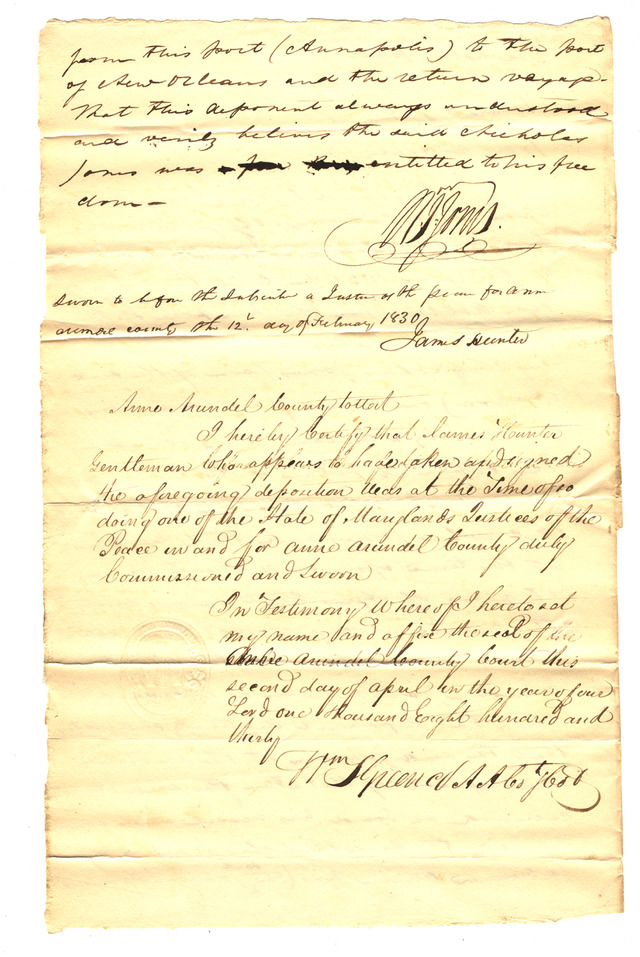 from this port (Annapolis) to the port
of New Orleans and the return voyage.
That this deponent always understood
and verily believes the said Nicholas
Jones was entitled to his free
dom —
Wm
Sworn to before the Subscriber a Justice of the peace for ann
arundel county the 12th day of February 1830
James Hunter
Anne Arundel County to wit
I hereby Certify that James Hunter
Gentleman who appears to have taken and signed
the aforegoing deposition was at the Time of so
doing one of the State of Marylands Justices of the
Peace in and for anne arundel County duly
Commissioned and Sworn
In Testimony whereof I hereto set
my name and affix the seal of the
Anne Arundel County Court this
second day of april in the year of our
Lord one thousand Eight hundred and
thirty
Wm S Green Clk A A Co